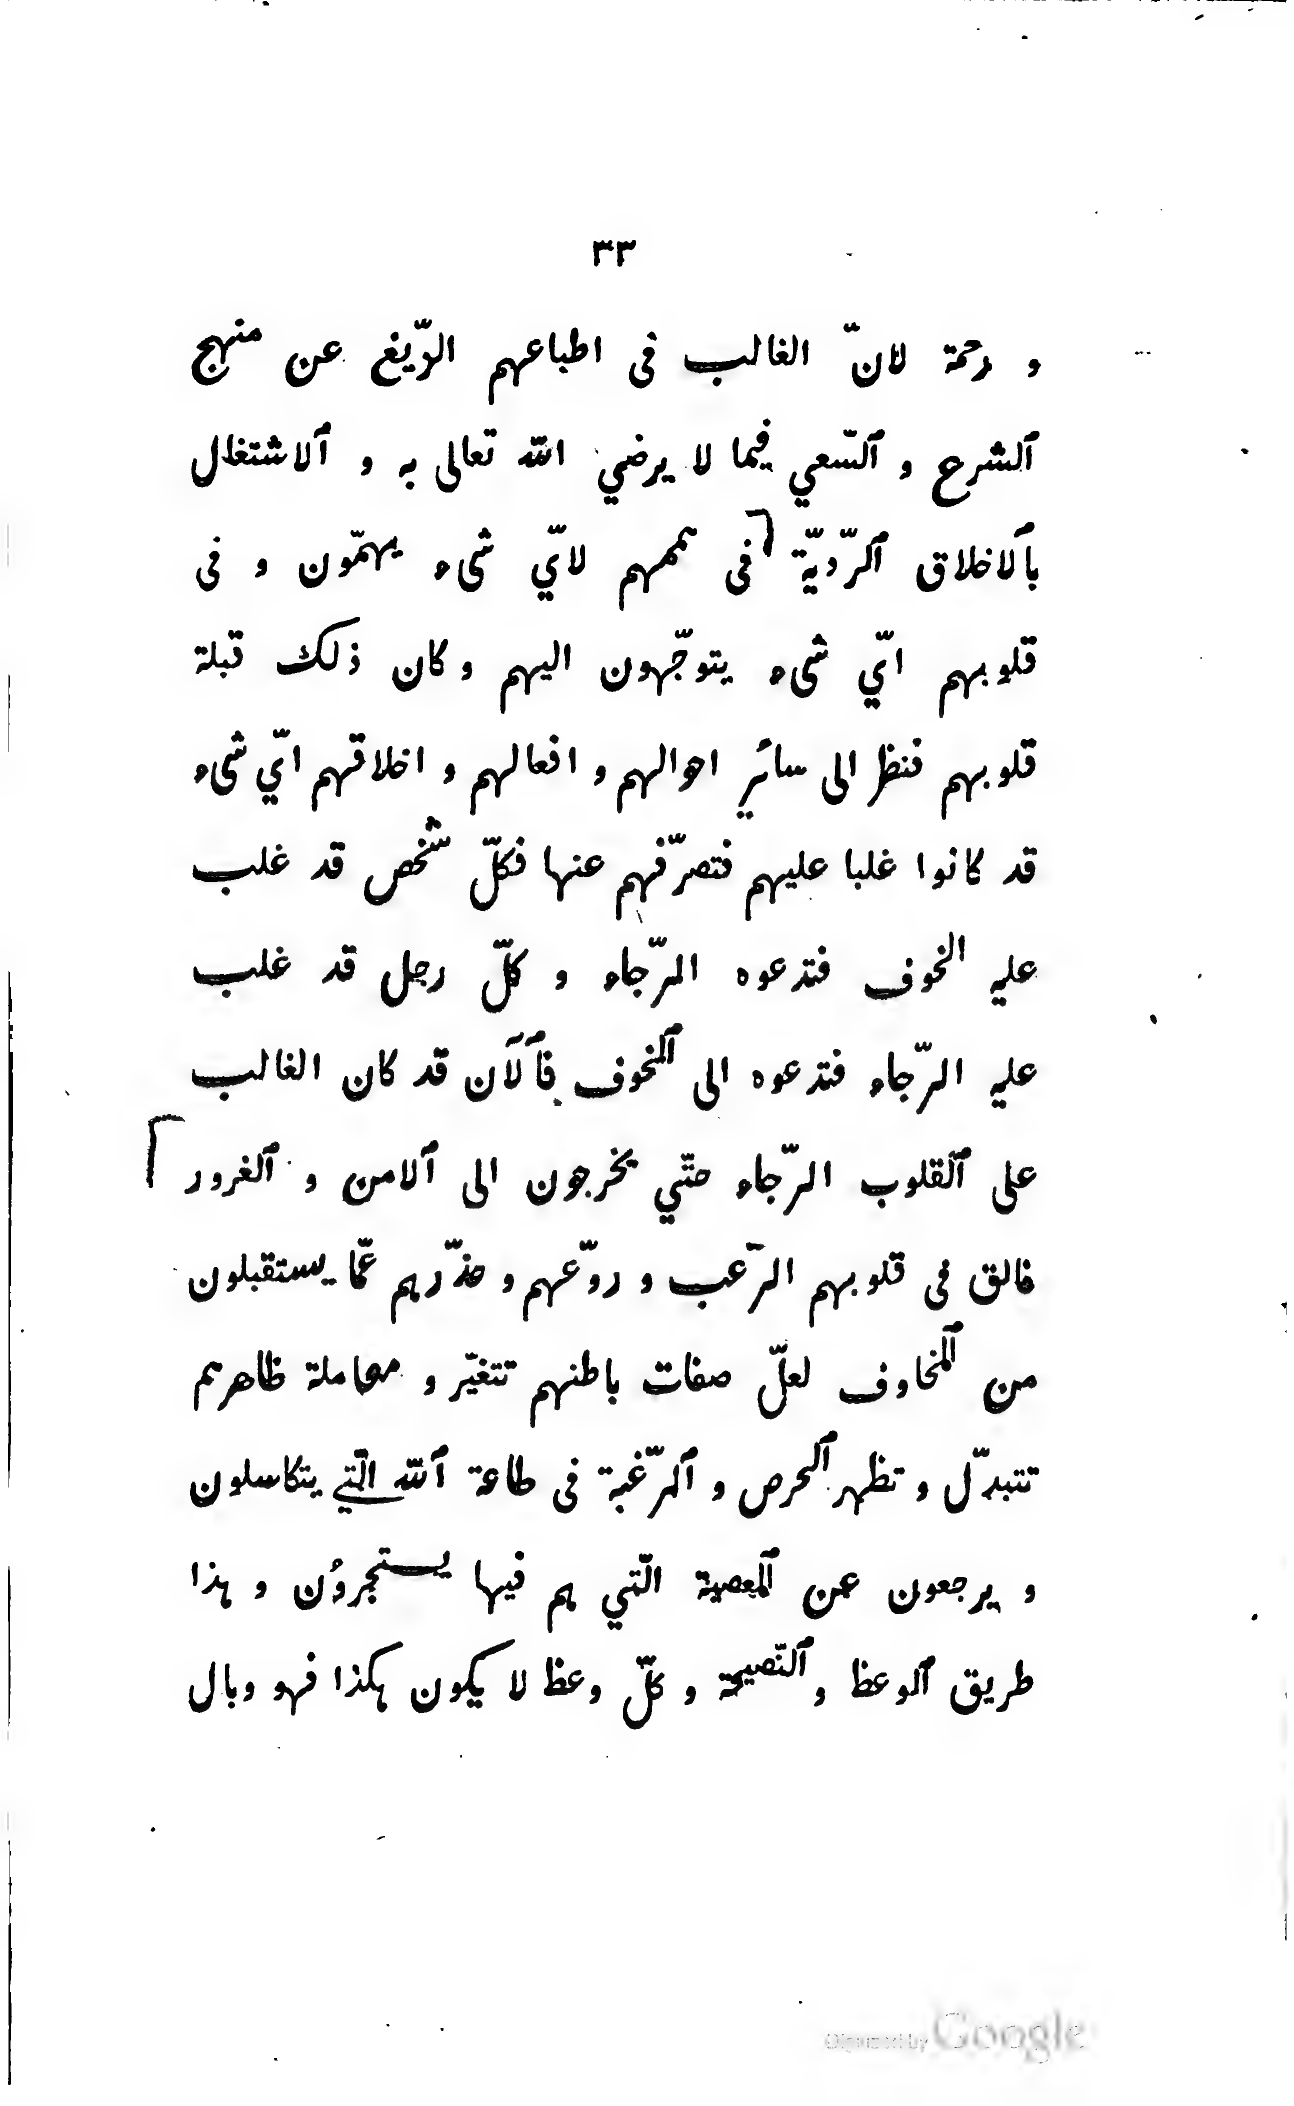 ٣٣
و رحمة لانّ الغالب فى اطباعهم الزّيغ عن منهج
ٱلشرع و ٱلسّعي فيما لا يرضي اللّٰه تعالى به و ٱلاشتغال
بٱلاخلاق ٱلرّديّة فى هممهم لايّ شىء يهمّون و فى
قلوبهم ايّ شىء يتوجّهون اليهم و كان ذلك قبلة
قلوبهم فنظر الى سائر احوالهم و افعالهم و اخلاقهم ايّ شىء
قد كانوا غلبا عليهم فتصرّفهم عنها فكلّ شخص قد غلب
عليه الخوف فتدعوه الرّجاء و كلّ رجل قد غلب
عليه الرّجاء فتدعوه الى ٱلخوف فٱلآن قد كان الغالب
على ٱلقلوب الرّجاء حتّي يخرجون الى ٱلامن و ٱلغرور
فالق فى قلوبهم الرّعب و روّعهم و حذّرهم عمّا يستقبلون
من ٱلمخاوف لعلّ صفات باطنهم تتغيّر و معاملة ظاهرهم
تتبدّل و تظهر ٱلحرص و ٱلرّغبة فى طاعة ٱللّٰه الّتي يتكاسلون
و يرجعون عن ٱلمعصية الّتي هم فيها يستجرؤن و هذا
طريق ٱلوعظ و ٱلنّصيحة و كلّ وعظ لا يكون هكذا فهو وبال
Digitized by Google